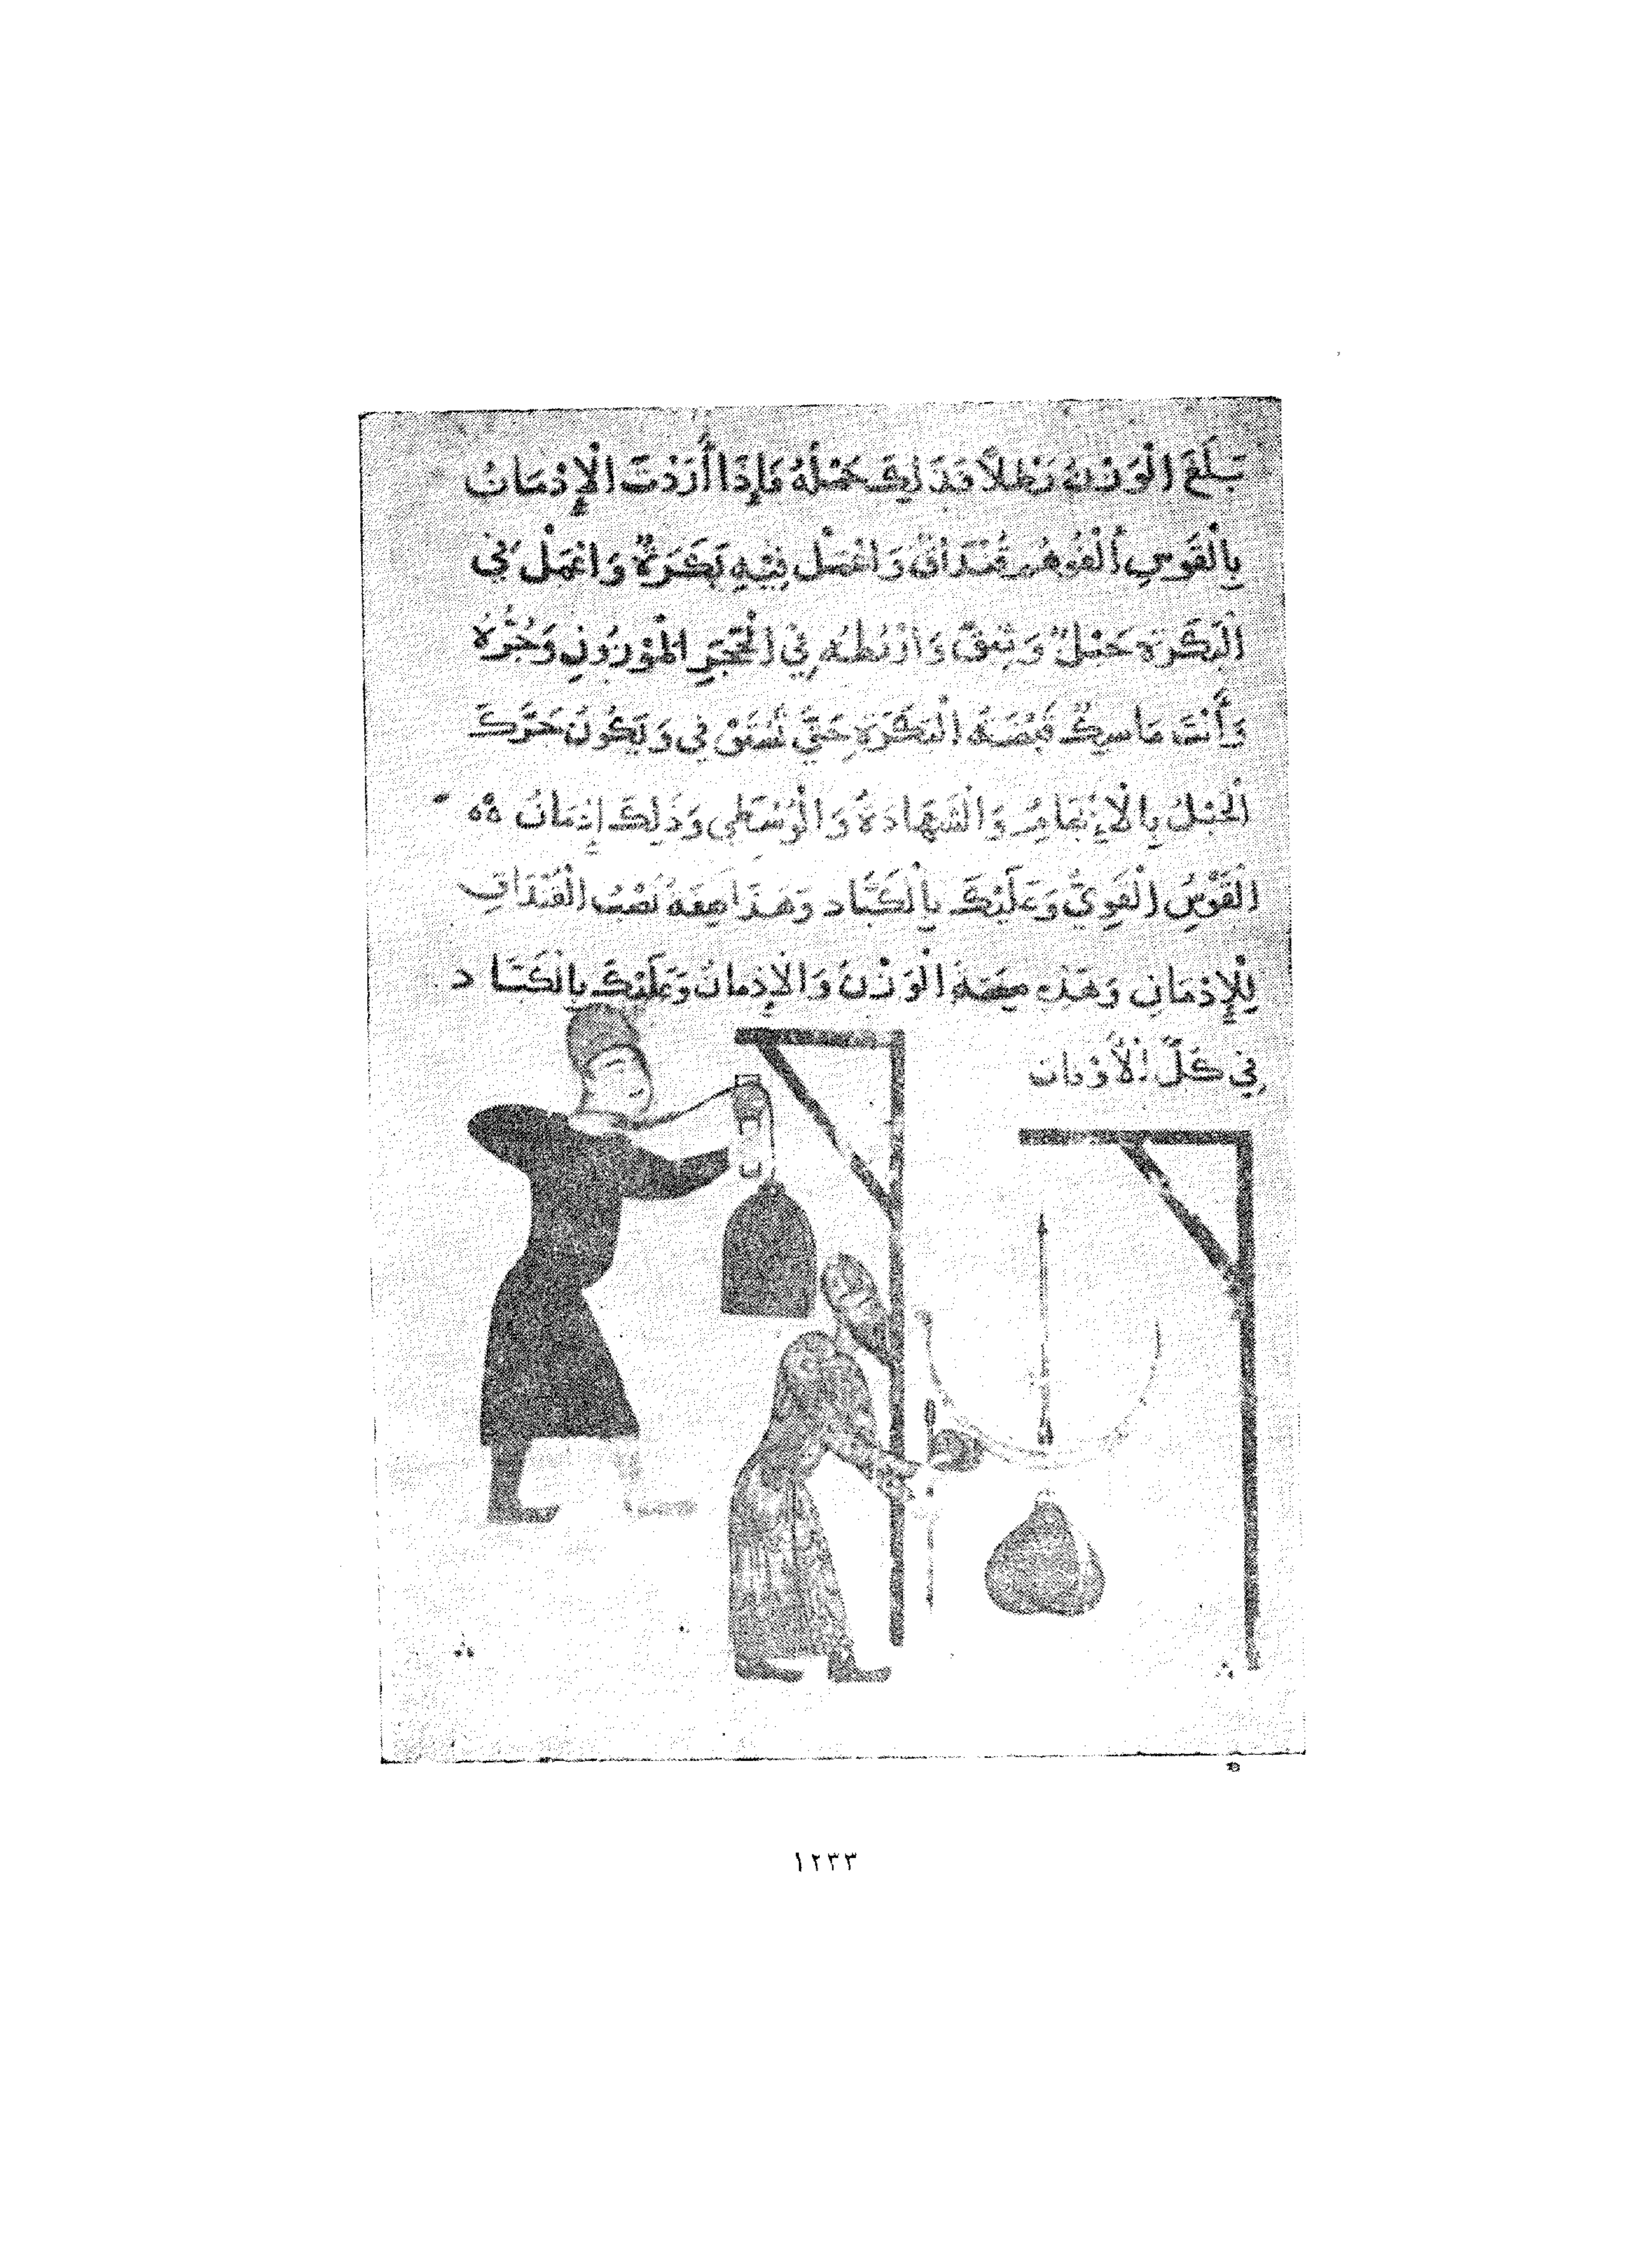 بَلَغَ الْوَزْنُ رَطْلاً فَذَلِكَ حَمْلُهُ فَإِذَا أَرَدْتَ الْإِدْمَانُ
بِالْقَوسِ قُنْدَاقٌ وَاعْمَل فِيْهِ بَكَرَةٌ وَاعْمَلْ فِي
الْبَكَرَةِ حَبْلٌ وَثِيقٌ وَارْبُطْهُ فِي الْحَجَرِ الْمَوْزُونِ وَجُرَّهُ
وَأَنْتَ مَاسِكٌ قَبْضَةُ الْبَكَرَةِ حَتَّى تَسْتَوْفِي وَيَكُونَ حَرَّكَ
الْحَبْلُ بِالْإِبْهَامِ وَالْشَهَادَةُ وَالْوُسْطَي وَذَلِكَ إِدْمَانُ
الْقَوْسُ الْقَوِيُّ وَعَلَيْكَ بِالْكَبَّاد وَهَذَا صِفَة نَصْبُ الْقُنْدَاقِ
لِلْإِدْمَانِ وَهَذِهِ صِفَة الْوَزْنَ وَالْإِدْمَانُ وَعَلَيْكَ بِالْكَبَّاد
فِي كُلِّ الْأَوْقَات
١٢٣٣